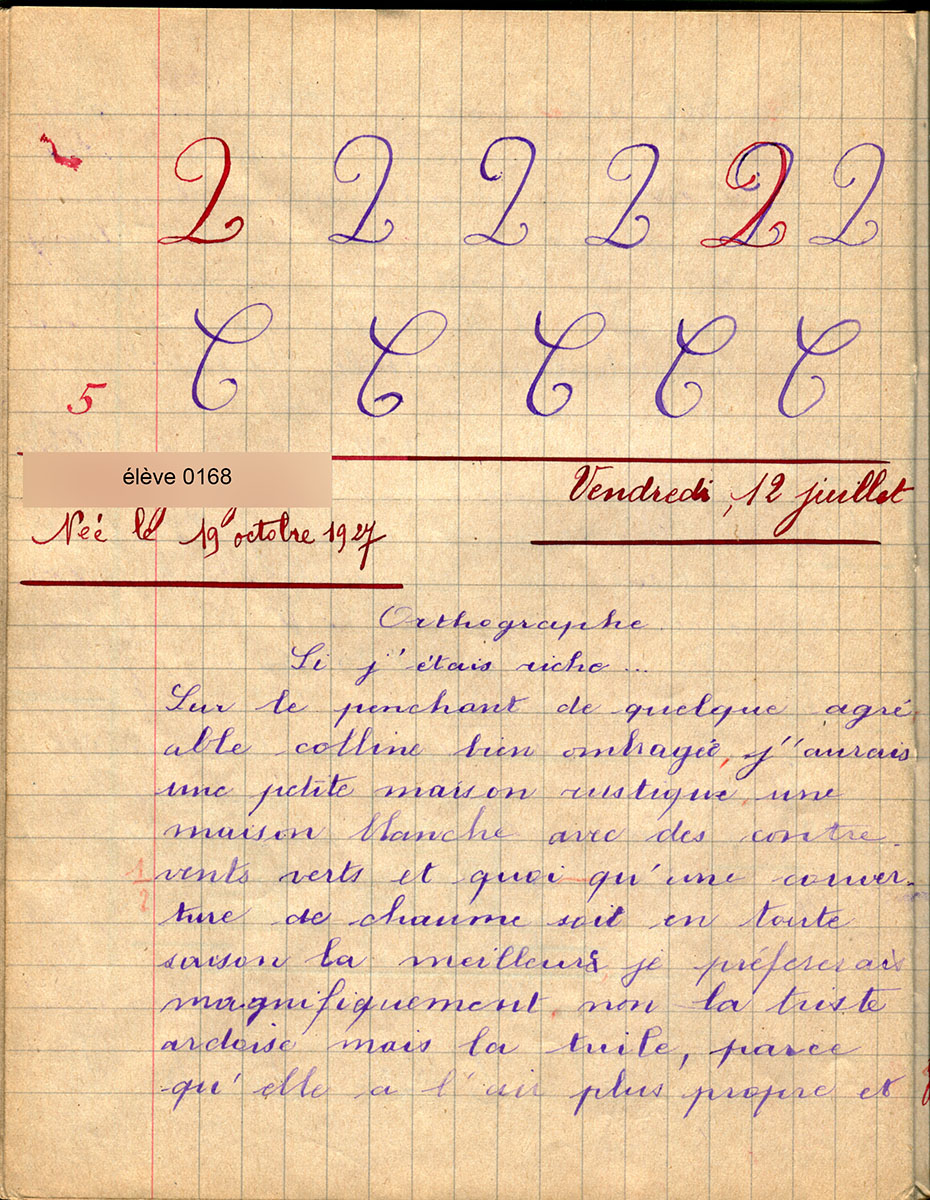 2 2 2 2 2 2
C C C C C
5
élève 0168
Vendredi, 12 juillet
Neé le 19 octobre 1927
Orthographe
Si j'étais riche...
Sur le penchant de quelque agré
able colline bien ombragée, j'aurais
une petite maison rustique, une
maison blanche avec des contre
1/2 vents verts et quoi qu'une couver-
ture de chaume soit en toute
saison la meilleure je préfererais
magnifiquement, non la triste
ardoise mais la tuile, parce
qu'elle a l'air plus propre et